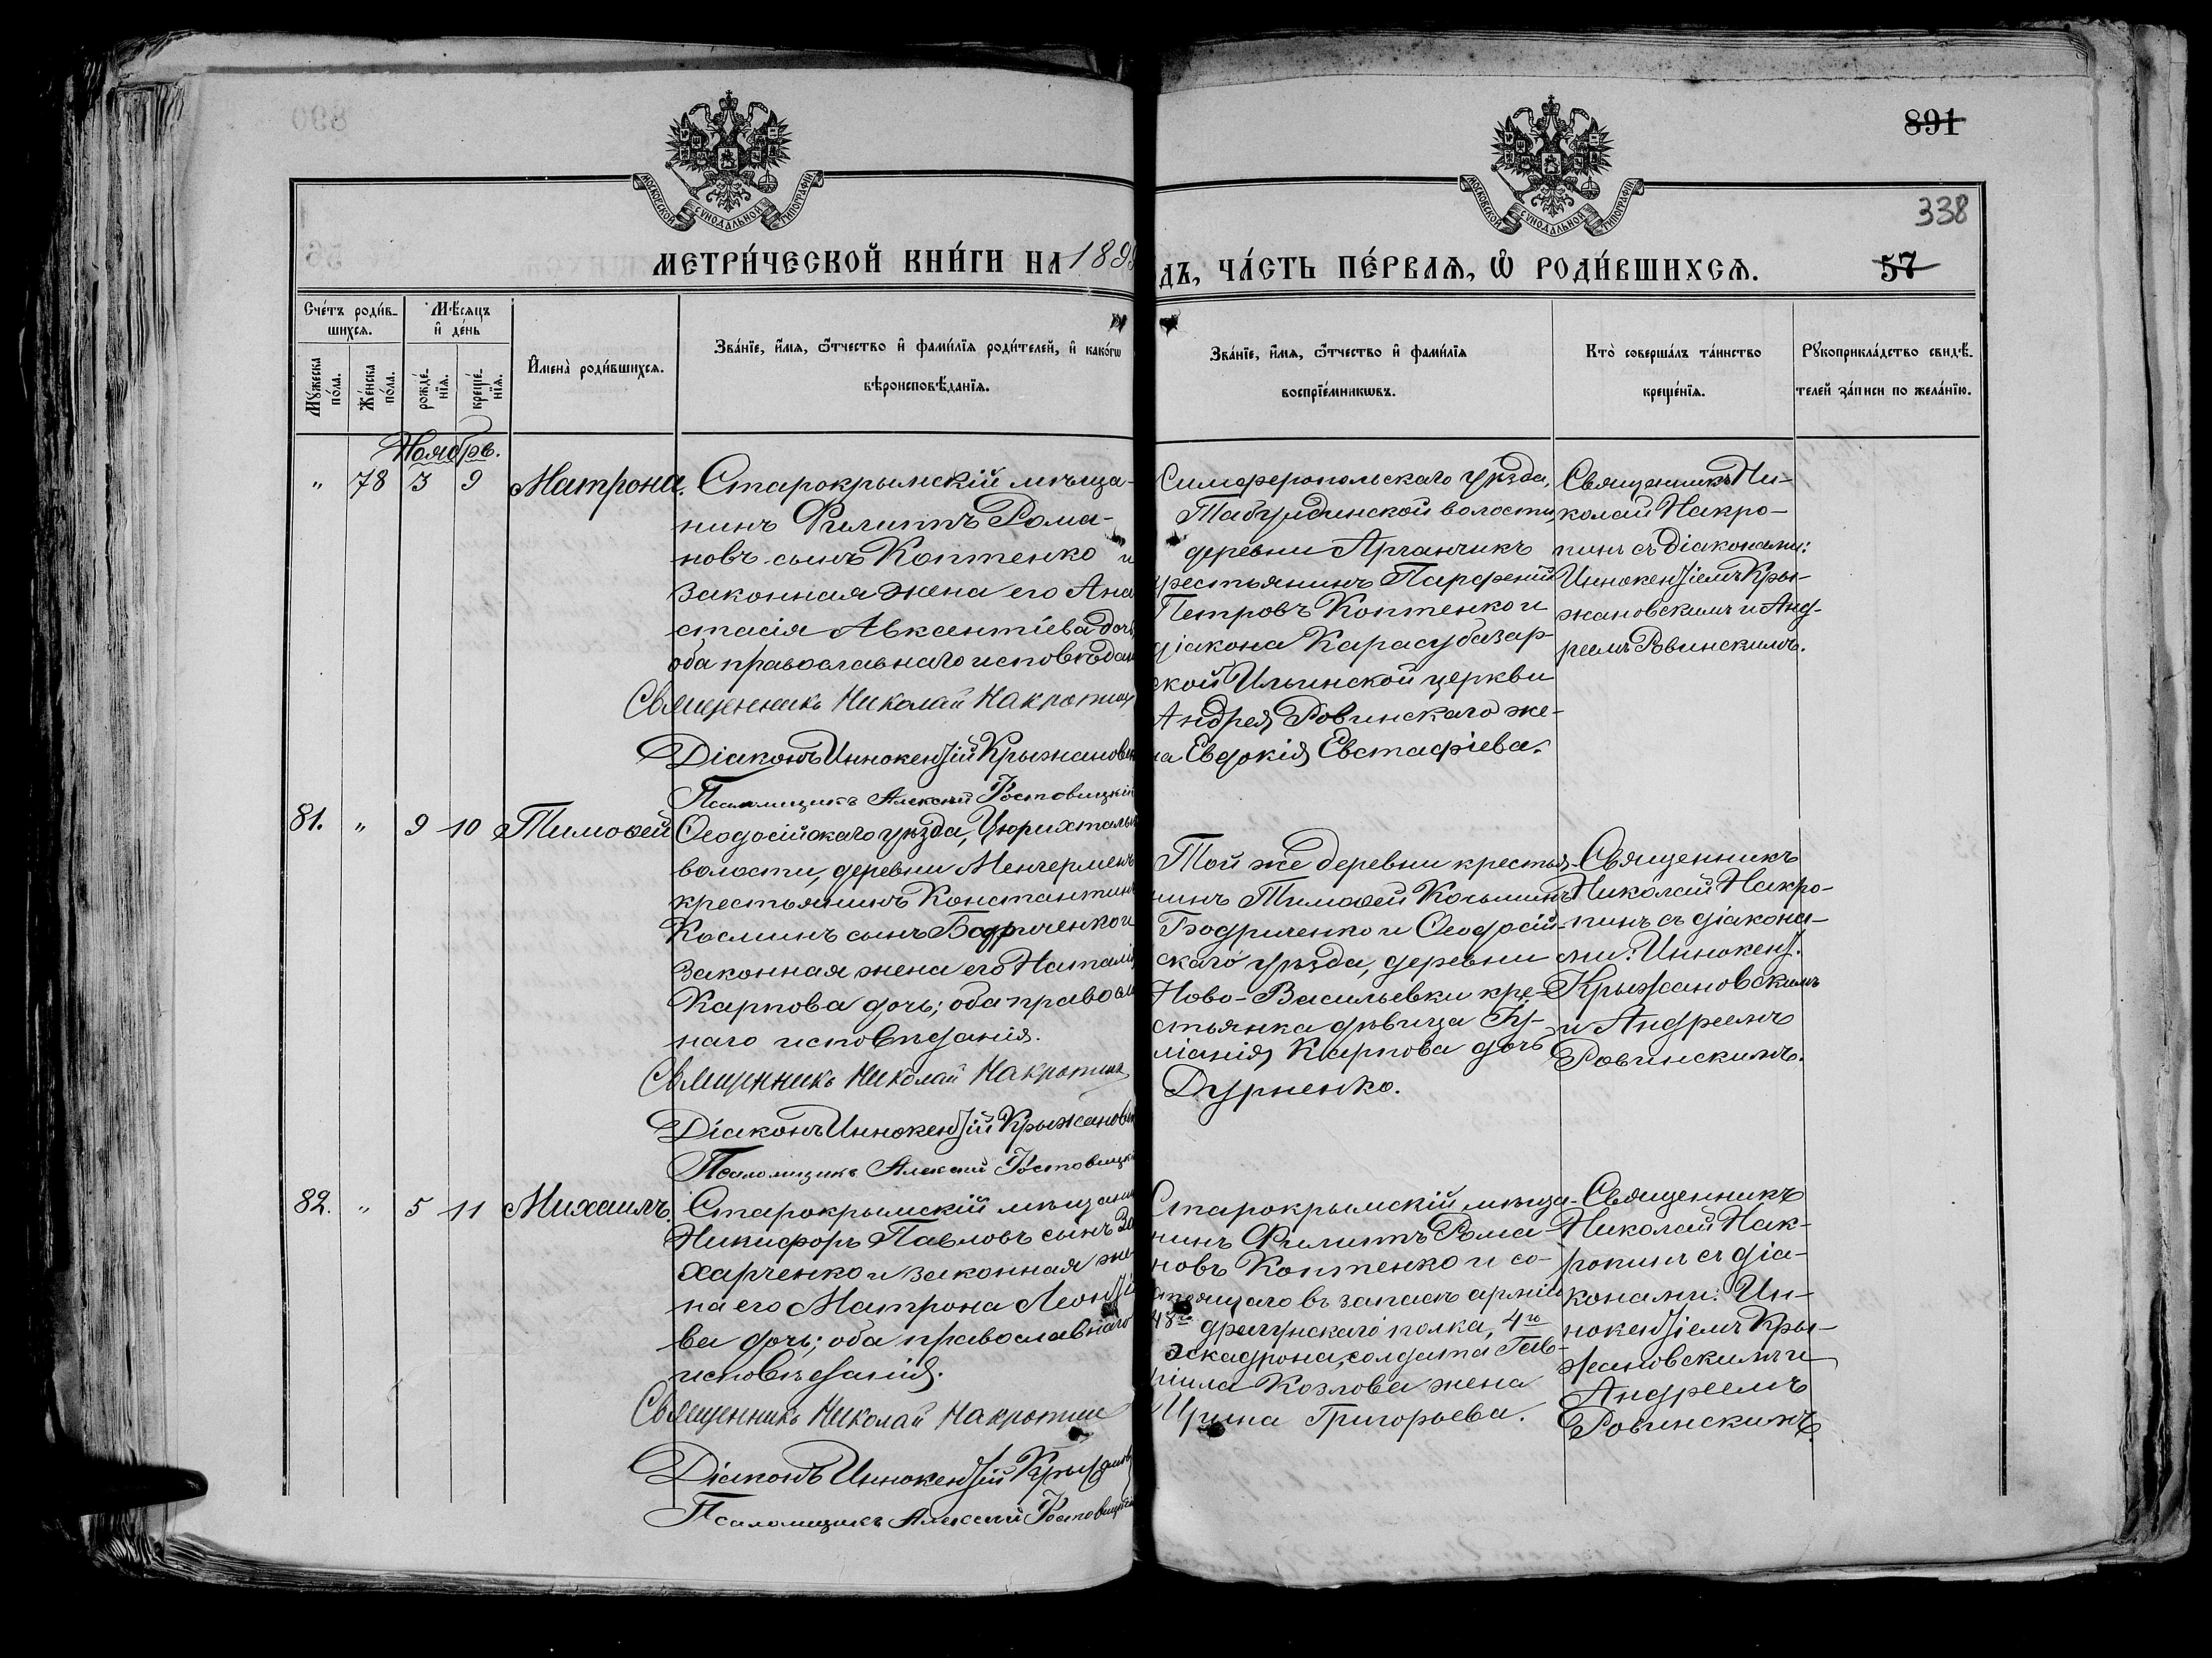 891
338
57
МОСКОВСКОЙ СУНОДАЛЬНОЙ ТИПОГРАФІИ
МОСКОВСКОЙ СУНОДАЛЬНОЙ ТИПОГРАФІИ
МЕТРИ́ЧЕСКОЙ КНИ́ГИ НА 1899
ДЪ, ЧА́СТЬ ПЕ́РВАѦ, Ѡ҆ РОДИ́ВШИХСѦ.
Сче́тъ роди́в-
шихсѧ.
Мꙋ́жеска
по́ла.
Же́нска
по́ла.
Мѣ́сѧцъ
и҆ де́нь
рожде́-
нїѧ.
креще́-
нїѧ.
И҆мена̀ роди́вшихсѧ.
Зва́нїе, и҆́мѧ, ѻ҆́тчество и҆ фами́лїѧ роди́телей, и҆ како́гѡ
вѣроисповѣ́данїѧ.
Зва́нїе, и҆́мѧ, ѻ҆́тчество и҆ фами́лїѧ
воспрїе́мникѡвъ.
Кто̀ соверша́лъ та́инство
креще́нїѧ.
Рꙋкоприкла́дство свидѣ́-
телей за́писи по жела́нїю.
Ноябрь.
" 78 3 9 Матрона.
Старокрымскій мѣща-
нинъ Филиппъ Рома-
новъ сынъ Коптенко и
законная жена его Ана
стасія Авксентіева дочь,
оба православнаго исповѣдан
Священникъ Николай Накропинъ
Діаконъ Иннокентій Крыжановск
Псаломщикъ Алексѣй Ростовицкій
Симферопольскаго уѣзда,
Табулдинской волости,
деревни Арганчикъ
крестьянинъ Парфеній
Петровъ Коптенко и
діакона Карасубазар-
ской Ильинской церкви
Андрея Ровинскаго же-
на Евдокія Евстафіева.
Священникъ Ни-
колай Накро-
пинъ съ діаконами:
Иннокентіемъ Кры-
жановскимъ и Анд-
реемъ Ровинскимъ.
81. " 9 10 Тимоѳей
Ѳеодосійскаго уѣзда, Цюрихтальс
волости, деревни Менгерменъ
крестьянинъ Константинъ
Косминъ сынъ Бодриченко и
законная жена его Наталія
Карпова дочь; оба правосла
наго исповѣданія.
Священникъ Николай Накропинъ
Діаконъ Иннокентій Крыжановск
Псаломщикъ Алексѣй Ростовицкі
Той же деревни крестья-
нинъ Тимоѳей Косьминъ
Бодриченко и Ѳеодосій-
скаго уѣзда, деревни
Ново-Васильевки кре-
стьянка дѣвица Іу-
ліанія Карпова дочь
Дурненко.
Священникъ
Николай Накро-
пинъ съ діакона-
ми: Иннокент.
Крыжановскимъ
и Андреемъ
Ровинскимъ.
82. " 5 11 Михаилъ.
Старокрымскій мѣщани
Никифоръ Павловъ сынъ За
харченко и законная же
на его Матрона Леонті
ва дочь; оба православнаго
исповѣданія.
Священникъ Николай Накропин
Діаконъ Иннокентій Крыжанов
Псаломщикъ Алексѣй Ростовицкій
Старокрымскій мѣща-
нинъ Филиппъ Рома-
новъ Коптенко и со-
стоящаго въ запасѣ арміи
48го драгунскаго полка, 4го
эскадрона, солдата Гав-
ріила Козлова жена
Ирина Григорьева.
Священникъ
Николай Нак-
ропинъ съ діа-
конами: Ин-
нокентіемъ Кры-
жановскимъ и
Андреемъ
Ровинскимъ.